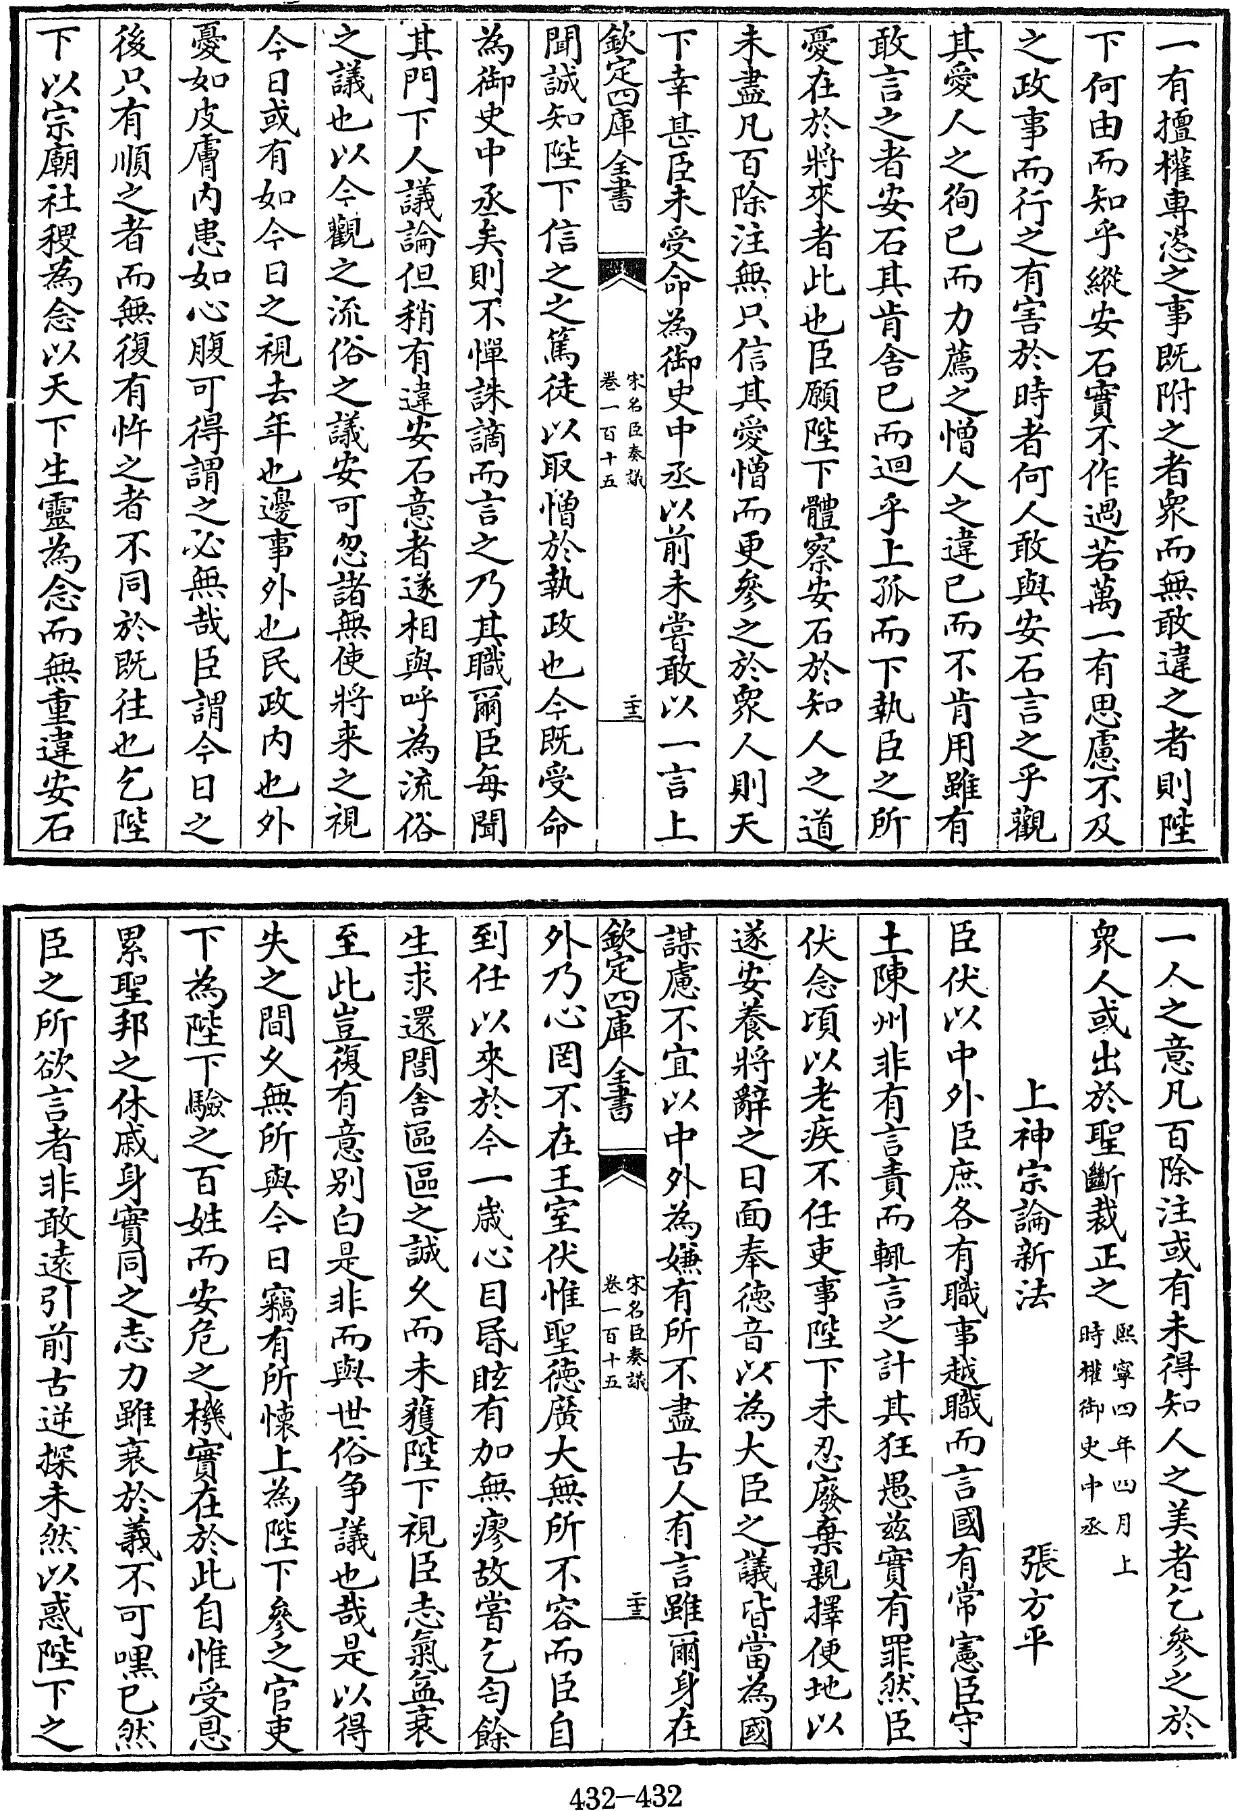 一有擅權專恣之事既附之者衆而無敢違之者則陛
下何由而知乎縱安石實不作過若萬一有思慮不及
之政事而行之有害於時者何人敢與安石言之乎觀
其愛人之徇已而力薦之憎人之違已而不肯用雖有
敢言之者安石其肯舍已而迴乎上孤而下執臣之所
憂在於將來者此也臣願陛下體察安石於知人之道
未盡凡百除注無只信其愛憎而更參之於衆人則天
下幸甚臣未受命為御史中丞以前未嘗敢以一言上
欽定四庫全書
宋名臣奏議
卷一百十五
二十三
聞誠知陛下信之之篤徒以取憎於執政也今既受命
為御史中丞矣則不憚誅謫而言之乃其職爾臣每聞
其門下人議論但稍有違安石意者遂相與呼為流俗
之議也以今觀之流俗之議安可忽諸無使將来之視
今日或有如今日之視去年也邊事外也民政内也外
憂如皮膚内患如心腹可得謂之必無哉臣謂今日之
後只有順之者而無復有忤之者不同於既往也乞陛
下以宗廟社稷為念以天下生靈為念而無重違安石
一人之意凡百除注或有未得知人之美者乞參之於
衆人或出於聖斷裁正之
熙寧四年四月上
時權御史中丞
上神宗論新法
張方平
臣伏以中外臣庶各有職事越職而言國有常憲臣守
土陳州非有言責而輒言之計其狂愚兹實有罪然臣
伏念頃以老疾不任吏事陛下未忍廢棄親擇便地以
遂安養將辭之日面奉德音以為大臣之議皆當為國
謀慮不宜以中外為嫌有所不盡古人有言雖爾身在
欽定四庫全書
宋名臣奏議
卷一百十五
二十三
外乃心罔不在王室伏惟聖德廣大無所不容而臣自
到任以來於今一歲心目昬眩有加無瘳故嘗乞匄餘
生求還閭舍區區之誠久而未獲陛下視臣志氣益衰
至此豈復有意别白是非而與世俗争議也哉是以得
失之間久無所與今日竊有所懷上為陛下參之官吏
下為陛下驗之百姓而安危之機實在於此自惟受恩
累聖邦之休戚身實同之志力雖衰於義不可嘿已然
臣之所欲言者非敢遠引前古逆探未然以惑陛下之
432-432